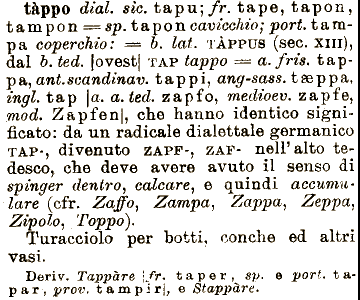 tàppo dial. sic. tapu; fr. tape, tapon,
tampon = sp. tapon cavicchio; port. tam-
pa coperchio: = b. lat. TÀPPUS (sec. XIII),
dal b. ted. |ovest| TAP tappo = a. fris. tap-
pa, ant. scandinav. tappi, ang-sass. tæppa,
ingl. tap |a. a. ted. zapfo, medioev. zapfe,
mod. Zapfen|, che hanno identico signi-
ficato: da un radicale dialettale germanico
TAP-, divenuto ZAPF-, ZAF- nell'alto te-
desco, che deve avere avuto il senso di
spinger dentro, calcare, e quindi accumu-
lare (cfr. Zaffo, Zampa, Zappa, Zeppa,
Zipolo, Toppo).
Turacciolo per botti, conche ed altri
vasi.
Deriv. Tappàre |fr. taper, sp. e port. ta-
par, prov. tampir|, e Stappàre.